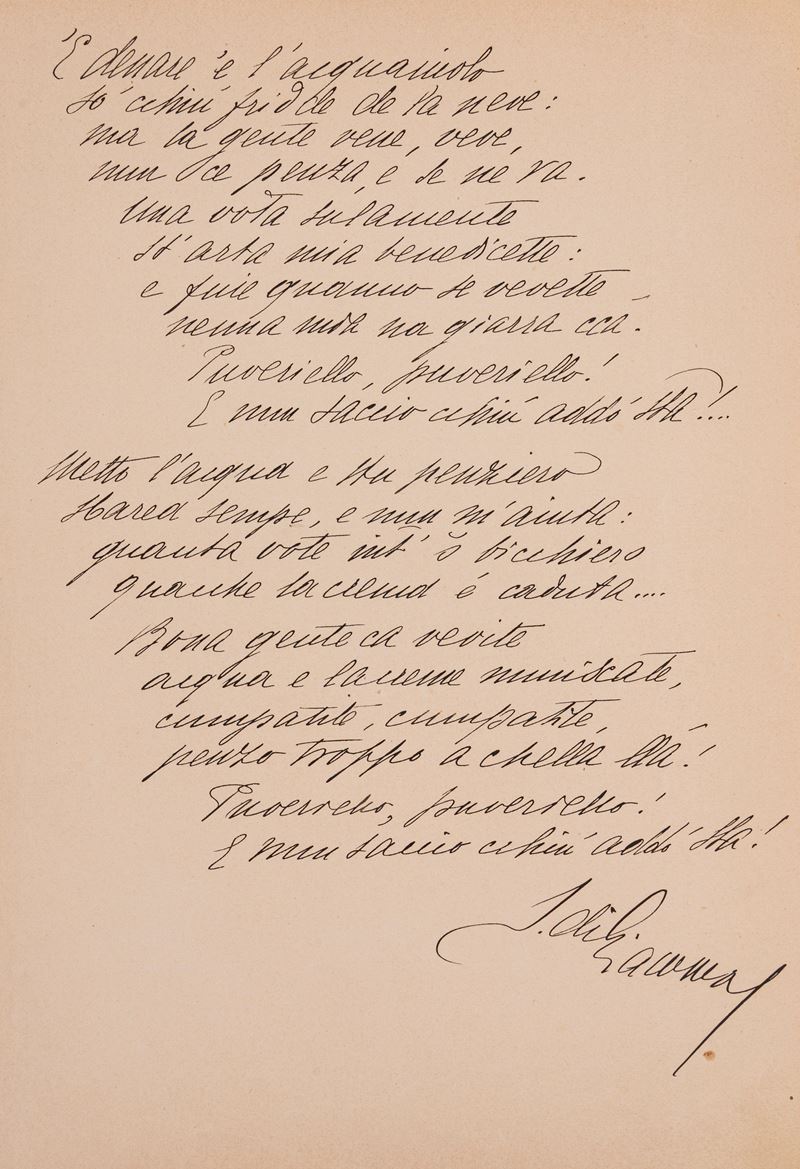 'E denare 'e l'acquaiuolo
só cchiú fridde de la neve:
ma la gente vene, veve,
nun ce penza, e se ne va.
Una vota sulamente
st'arta mia benedicette:
e fuie quanno se vevette
nenna mia na giarra cca.
Puveriello, puveriello!
E nun saccio cchiú addó sta!...
Metto l'acqua e stu penziero
starrà sempe, e nun m'aiuta:
quanta vote int' 'o bicchiero
quacche lacrema é caduta....
Bona gente ca vevite
acqua e lacreme mmiscate,
cumpatite, cumpatite,
penzo troppo a chella llá!
Puveriello, puveriello!
E nun saccio cchiú addó sta!
S. di Giacomo